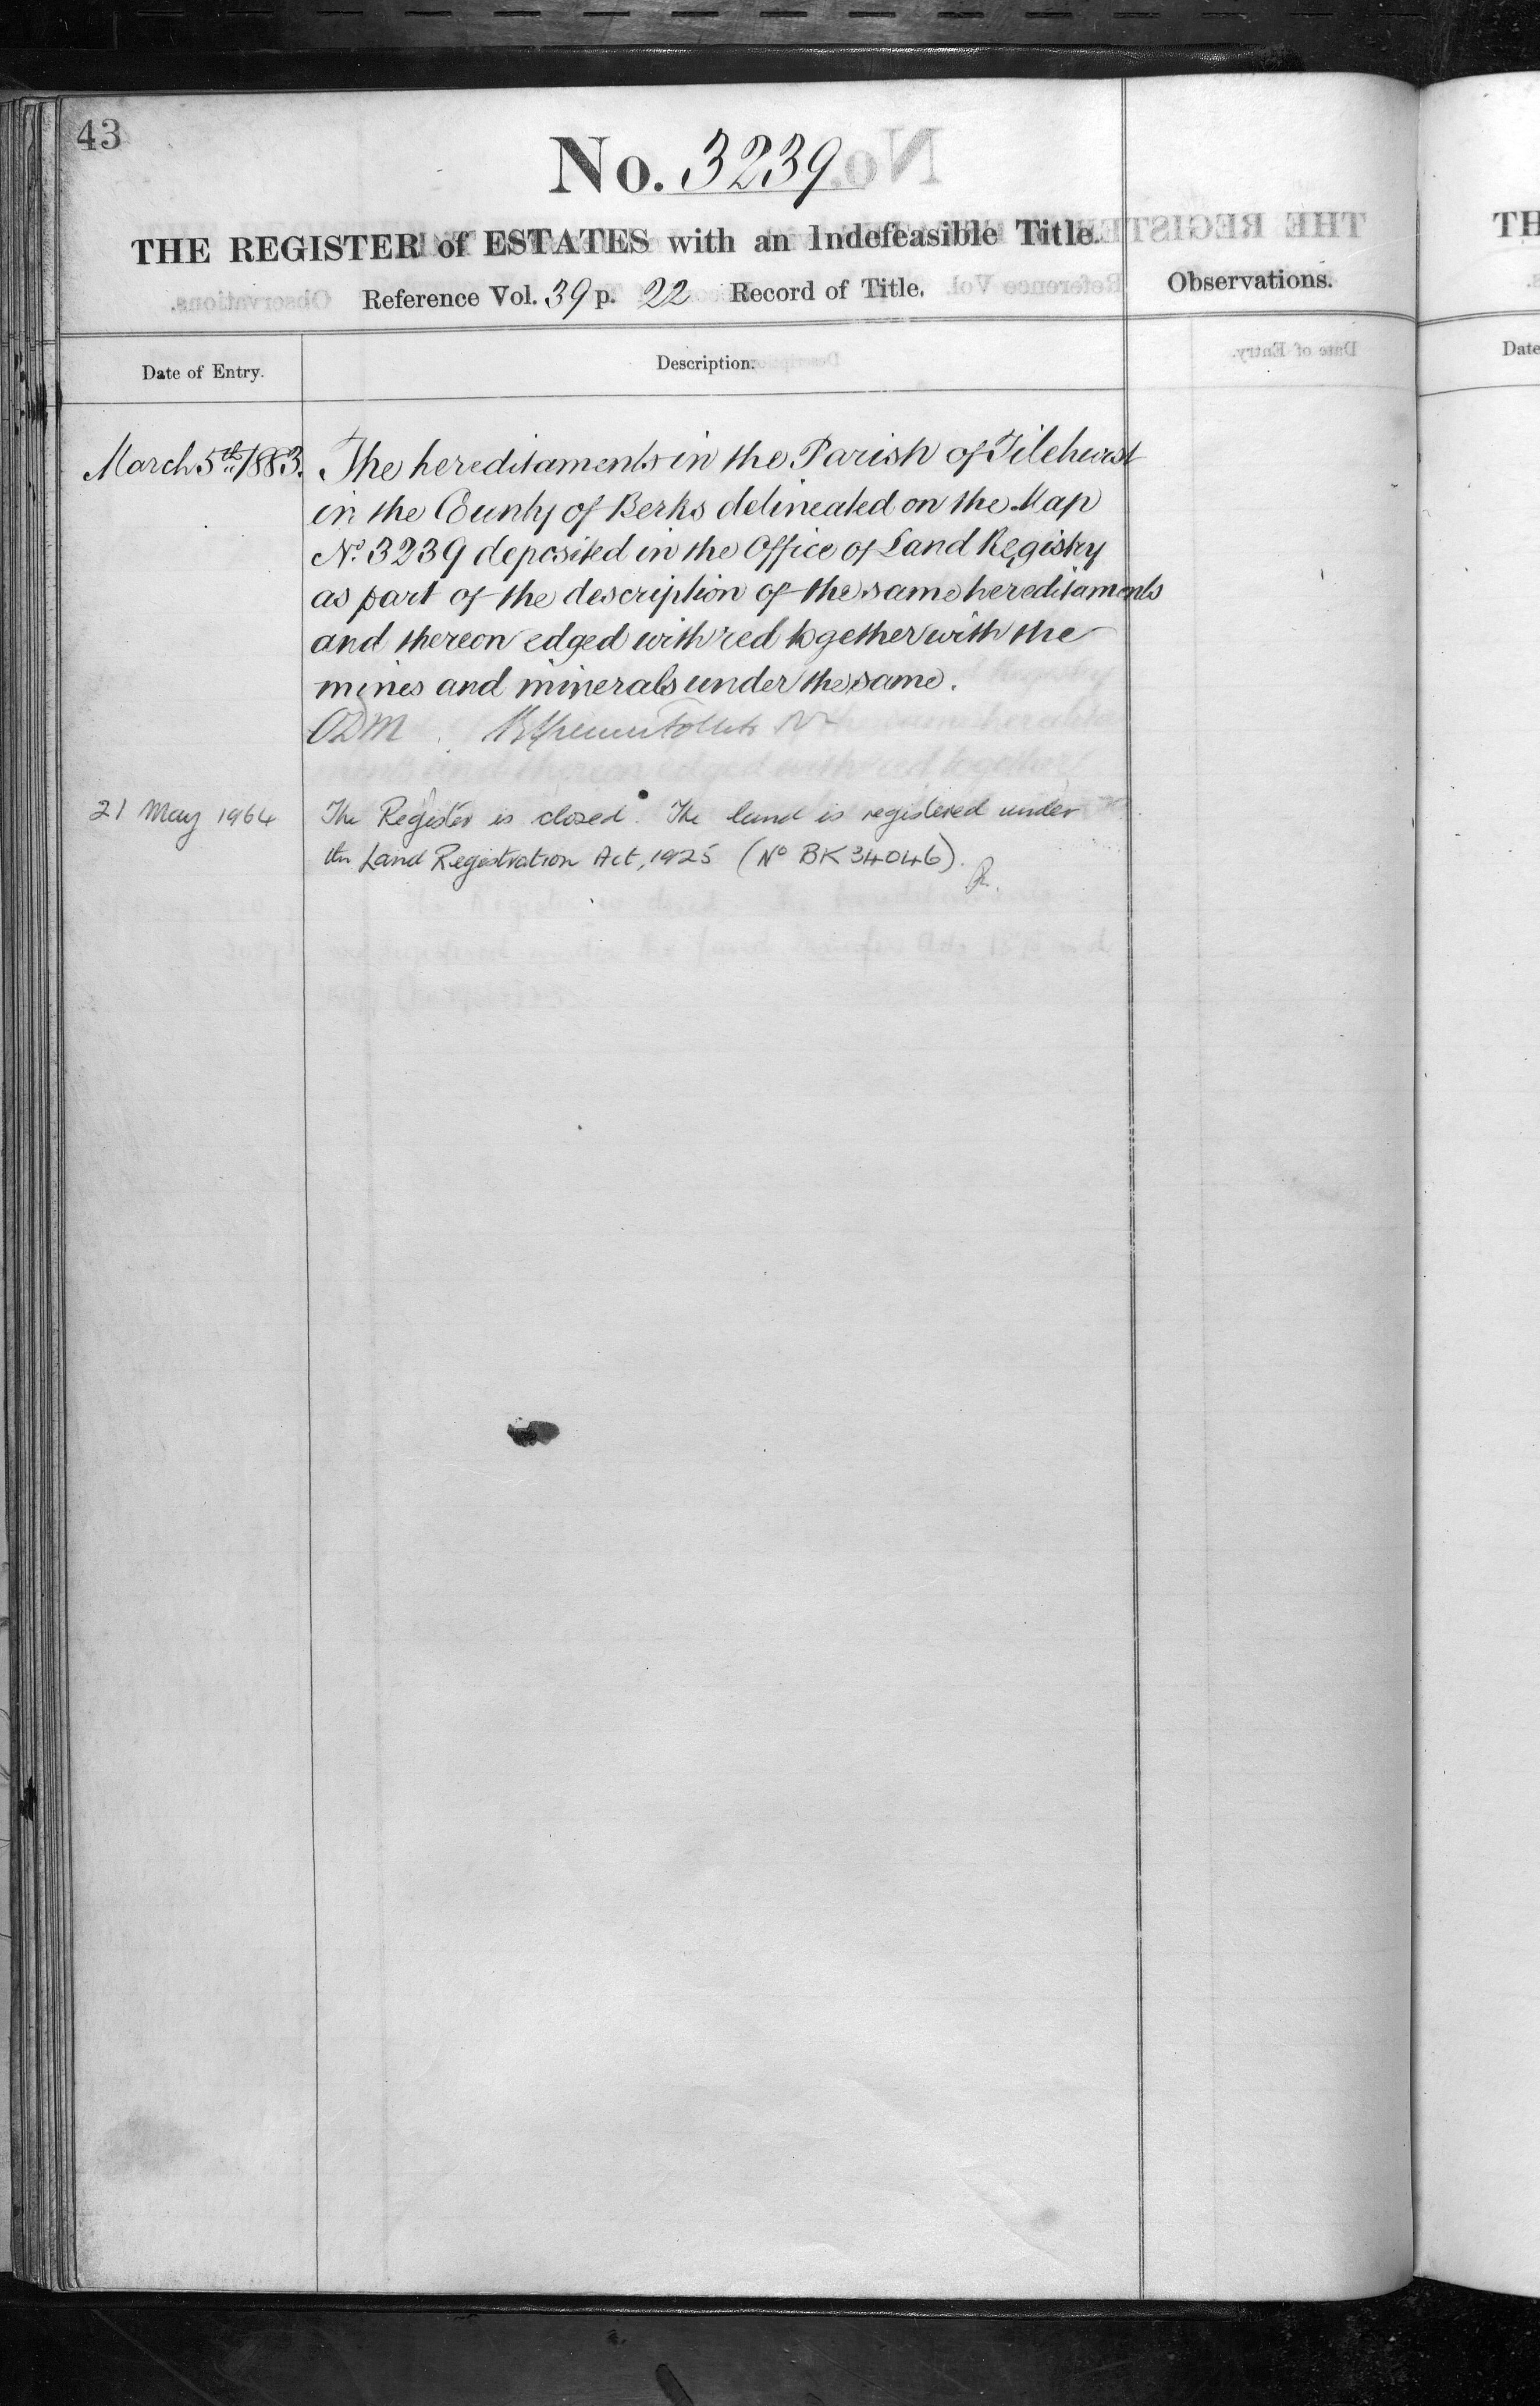 43
No. 3239
THE REGISTER of ESTATES with an Indefeasible Title.
Reference Vol. 39 p. 22 Record of Title.
Observations.
Date of Entry.
Description.
March 5th 1883.
The hereditaments in the Parish of Tilehurst
in the County of Berks delineated on the Map
No. 3239 deposited in the Office of Land Registry
as part of the description of the same hereditaments
and thereon edged with red together with the
mines and minerals under the same.
ODM
21 May 1964
The Register is closed. The land is registered under
the Land Registration Act, 1925 (No BK 34046).
TH
Date